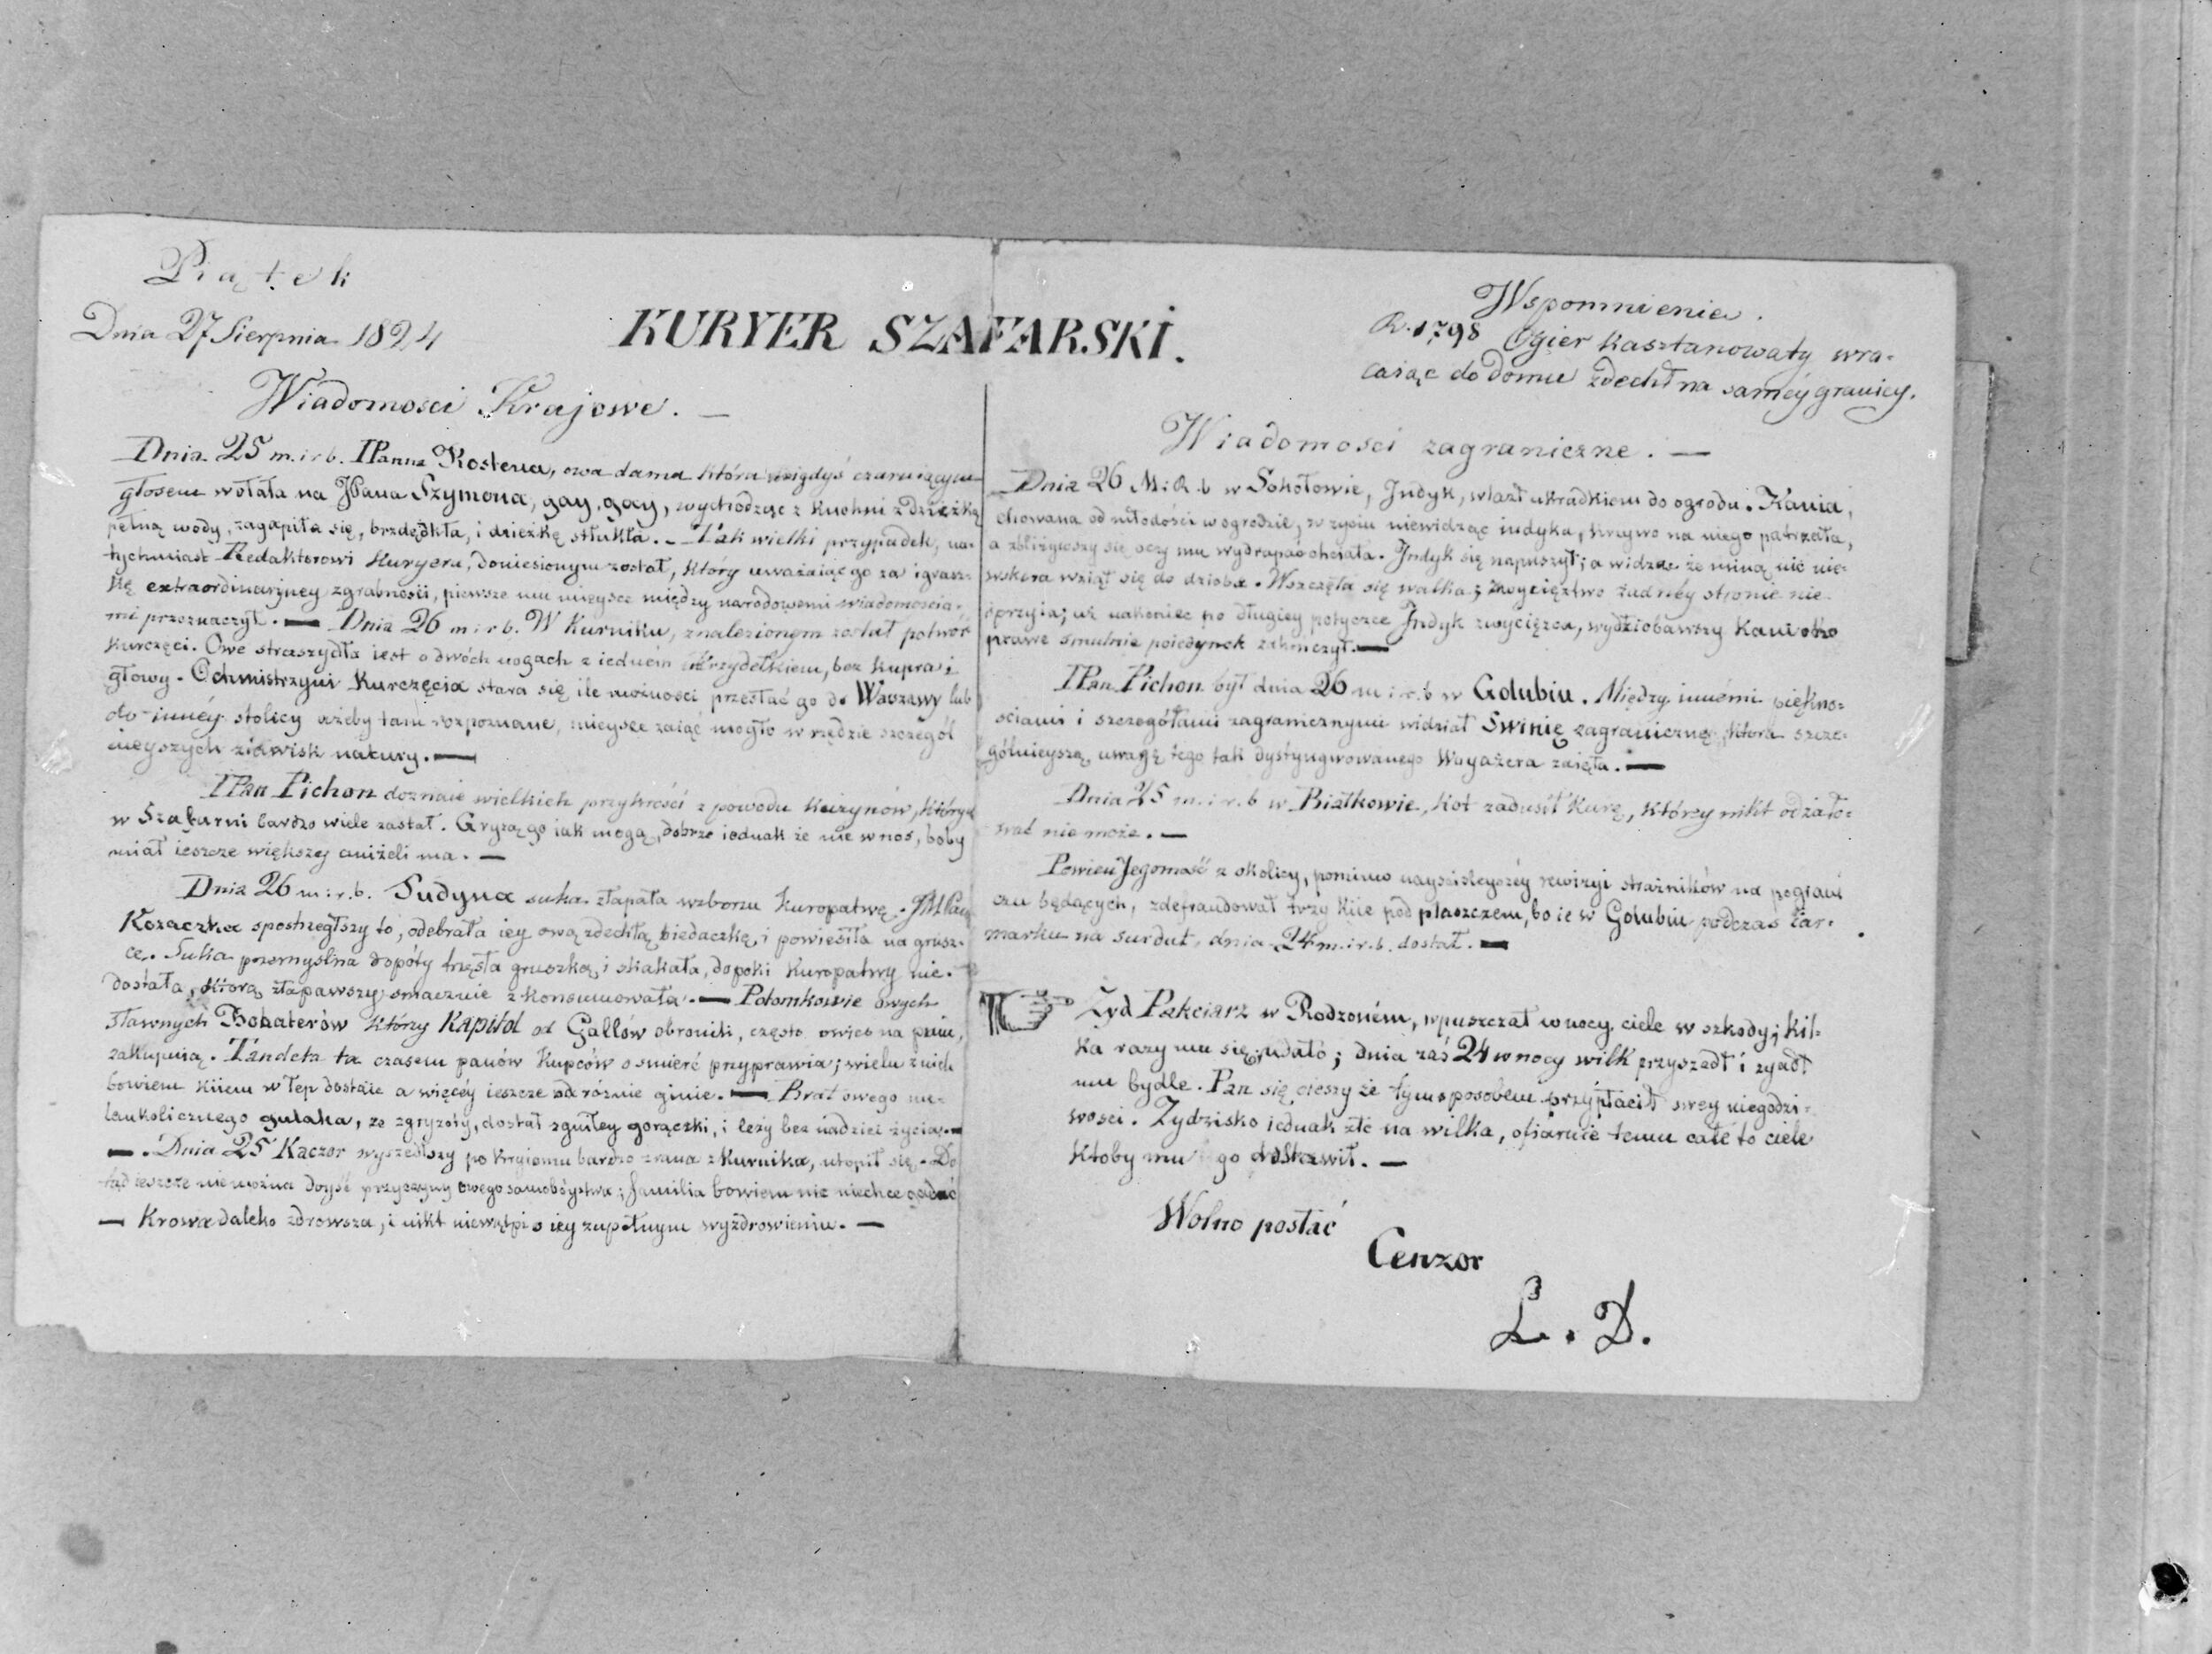 Piątek
Dnia 27 Sierpnia 1824
KURYER SZAFARSKI.
Wspomnienie.
R. 1798 Ogier kasztanowaty wra-
caiąc do domu zdechł na saméy granicy.
Wiadomosci Krajowe. —
Dnia 25 m. i r b. IPanna Kostena, owa dama która niegdyś czaruiącym
głosem wołała na JPana Szymona, gay, gay, wychodząc z kuchni z dzieżką
pełną wody, zagapiła się, brzdękła, i dzieżkę stłukła. — Tak wielki przypadek, na-
tychmiast Redaktorowi Kuryera, doniesionym został, który uważaiąc go za igrasz-
kę extraordinaryjney zgrabności, piewsze mu mieysce między narodowemi wiadomoscia-
mi przeznaczył. — Dnia 26 m: r b. W Kurniku, znalezionym został potwór
kurczęci. Owe straszydło iest o dwóch nogach z iedném skrzydełkiem, bez kupra i
głowy. Ochmistrzyni Kurczęcia stara się ile możności przesłać go do Warszawy lub
do innéy stolicy ażeby tam rozpoznane, mieysce zaiąć mogło w rzędzie szczegól
nieyszych ziawisk natury. —
IPan Pichon doznaie wielkich przykrości z powodu Kuzynów, których
w Szafarni bardzo wiele zastał. Gryzą go iak mogą, dobrze iednak że nie w nos, boby
miał ieszcze większy aniżeli ma. —
Dnia 26 m: r. b. Sudyna suka złapała w zbożu kuropatwę. JMPani
Kozaczka spostrzegłszy to, odebrała iey ową zdechłą biedaczkę, i powiesiła na grusz-
ce. Suka przemyślna dopóty trzęsła gruszką, i skakała, dopoki Kuropatwy nie-
dostała, którą złapawszy smacznie zkonsumowała. — Potomkowie owych
sławnych Bohaterów którzy Kapitol od Gallów obronili, często owies na pniu,
zakupuią. Tandeta ta czasem panów Kupców o smierć przyprawia; wielu z nich
bowiem kiiem w łep dostaie a więcéy ieszcze od różnie ginie. — Brat owego me-
lankolicznego gulaka, ze zgryzoty, dostał zgniłey gorączki, i leży bez nadziei życia. —
— . Dnia 25 Kaczor wyszedłszy po kryiomu bardzo zrana z kurnika, utopił się. Do
tąd ieszcze nie można doysć przyczyny owego samobóystwa; familia bowiem nic niechce gadać
— Krowa daleko zdrowsza, i nikt niewątpi o iey zupełnym wyzdrowieniu. —
Wiadomosci zagraniczne. —
Dnia 26 M: R. b w Sokołowie, Indyk, wlazł ukradkiem do ogrodu. Kania,
chowana od młodości w ogrodzie, w zyciu niewidząc indyka, krzywo na niego patrzała,
a zbliżywszy się oczy mu wydrapać chciała. Indyk się napuszył; a widząc że miną nic nie-
wskóra wziął się do dzioba. Wszczęła się walka; zwycięztwo żadnéy stronie nie-
sprzyia; aż nakoniec po długiey potyczce Indyk zwycięzca, wydziobawszy Kani oko
prawe smutnie poiedynek zakończył. —
IPan Pichon był dnia 26 m: i r. b w Golubiu. Między innémi piękno-
sciami i szczegółami zagranicznymi widział Swinię zagraniczną, która szcze-
gólnieyszą uwagę tego tak dystyngwowanego Woyażera zaięła. —
Dnia 25 m. i r. b w Białkowie, Kot zadusił kurę, któréy nikt odżało-
wać nie może. —
Pewien Jegomość z okolicy, pomimo nayscisleyszéy rewizyi strażników na pograni
czu będących, zdefraudował trzy kiie pod płaszczem, bo ie w Golubiu podczas iar-
marku na surdut, dnia 24 m. i r. b. dostał. —
Żyd Pakciarz w Rodzoném, wpuszczał w nocy ciele w szkody; kil-
ka razy mu się udało; dnia zaś 24 w nocy wilk przyszedł i zjadł
mu bydle. Pan się cieszy że tym sposobem przypłacił swey niegodzi-
wosci. Zydzisko iednak złe na wilka, ofiaruie temu całe to ciele
ktoby mu go dostawił. —
Wolno posłać
Cenzor
L. D.